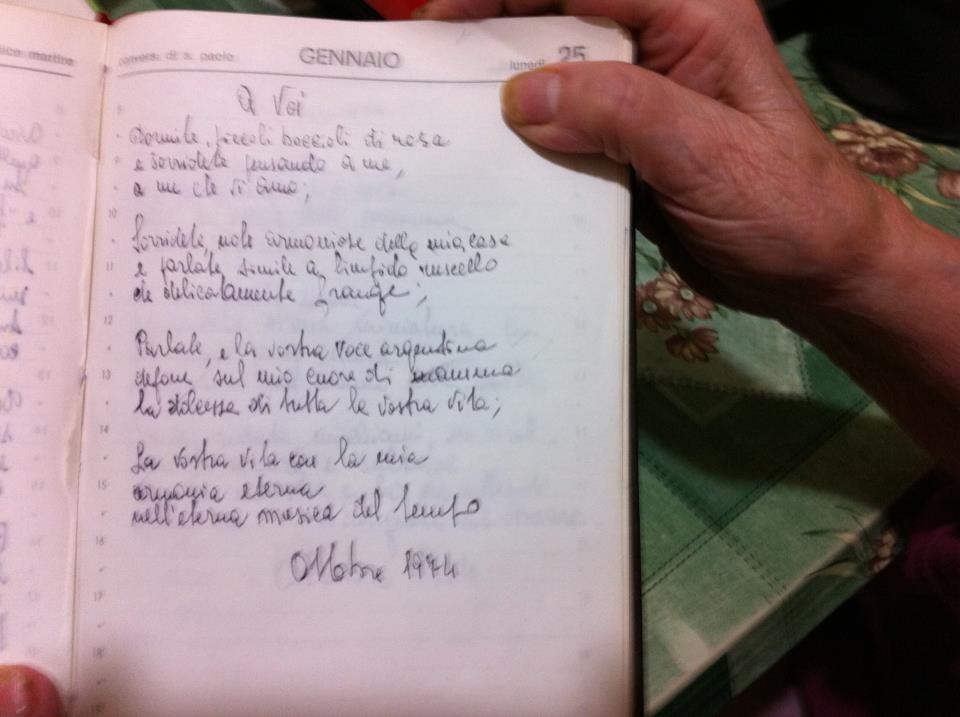 convers. di s. paolo GENNAIO lunedì 25
A Voi
Dormite, piccoli boccioli di rosa
e sorridete pensando a me,
a me che vi amo;
Sorridete, note armoniose della mia casa
e parlate simile a limpido ruscello
che delicatamente frange;
Parlate, e la vostra voce argentina
depone sul mio cuore di mamma
la dolcezza di tutta la vostra vita;
La vostra vita con la mia
armonia eterna
nell'eterna musica del tempo
Ottobre 1974
martire
9
10
11
12
13
14
15
16
17
18